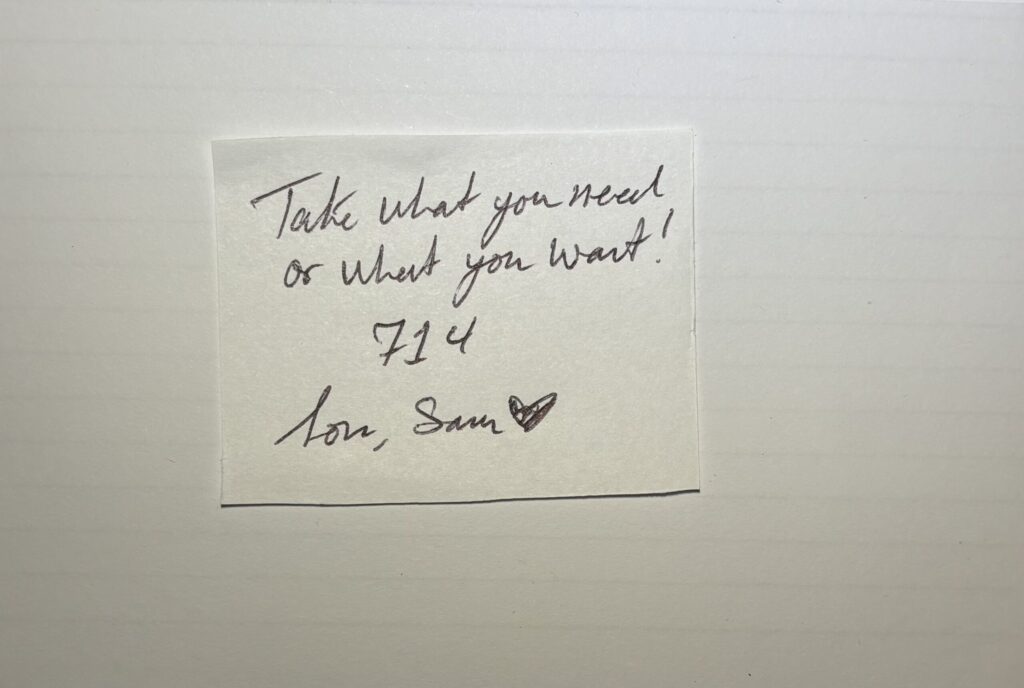 Take what you need
or what you want!
714
Love, Sam ♥